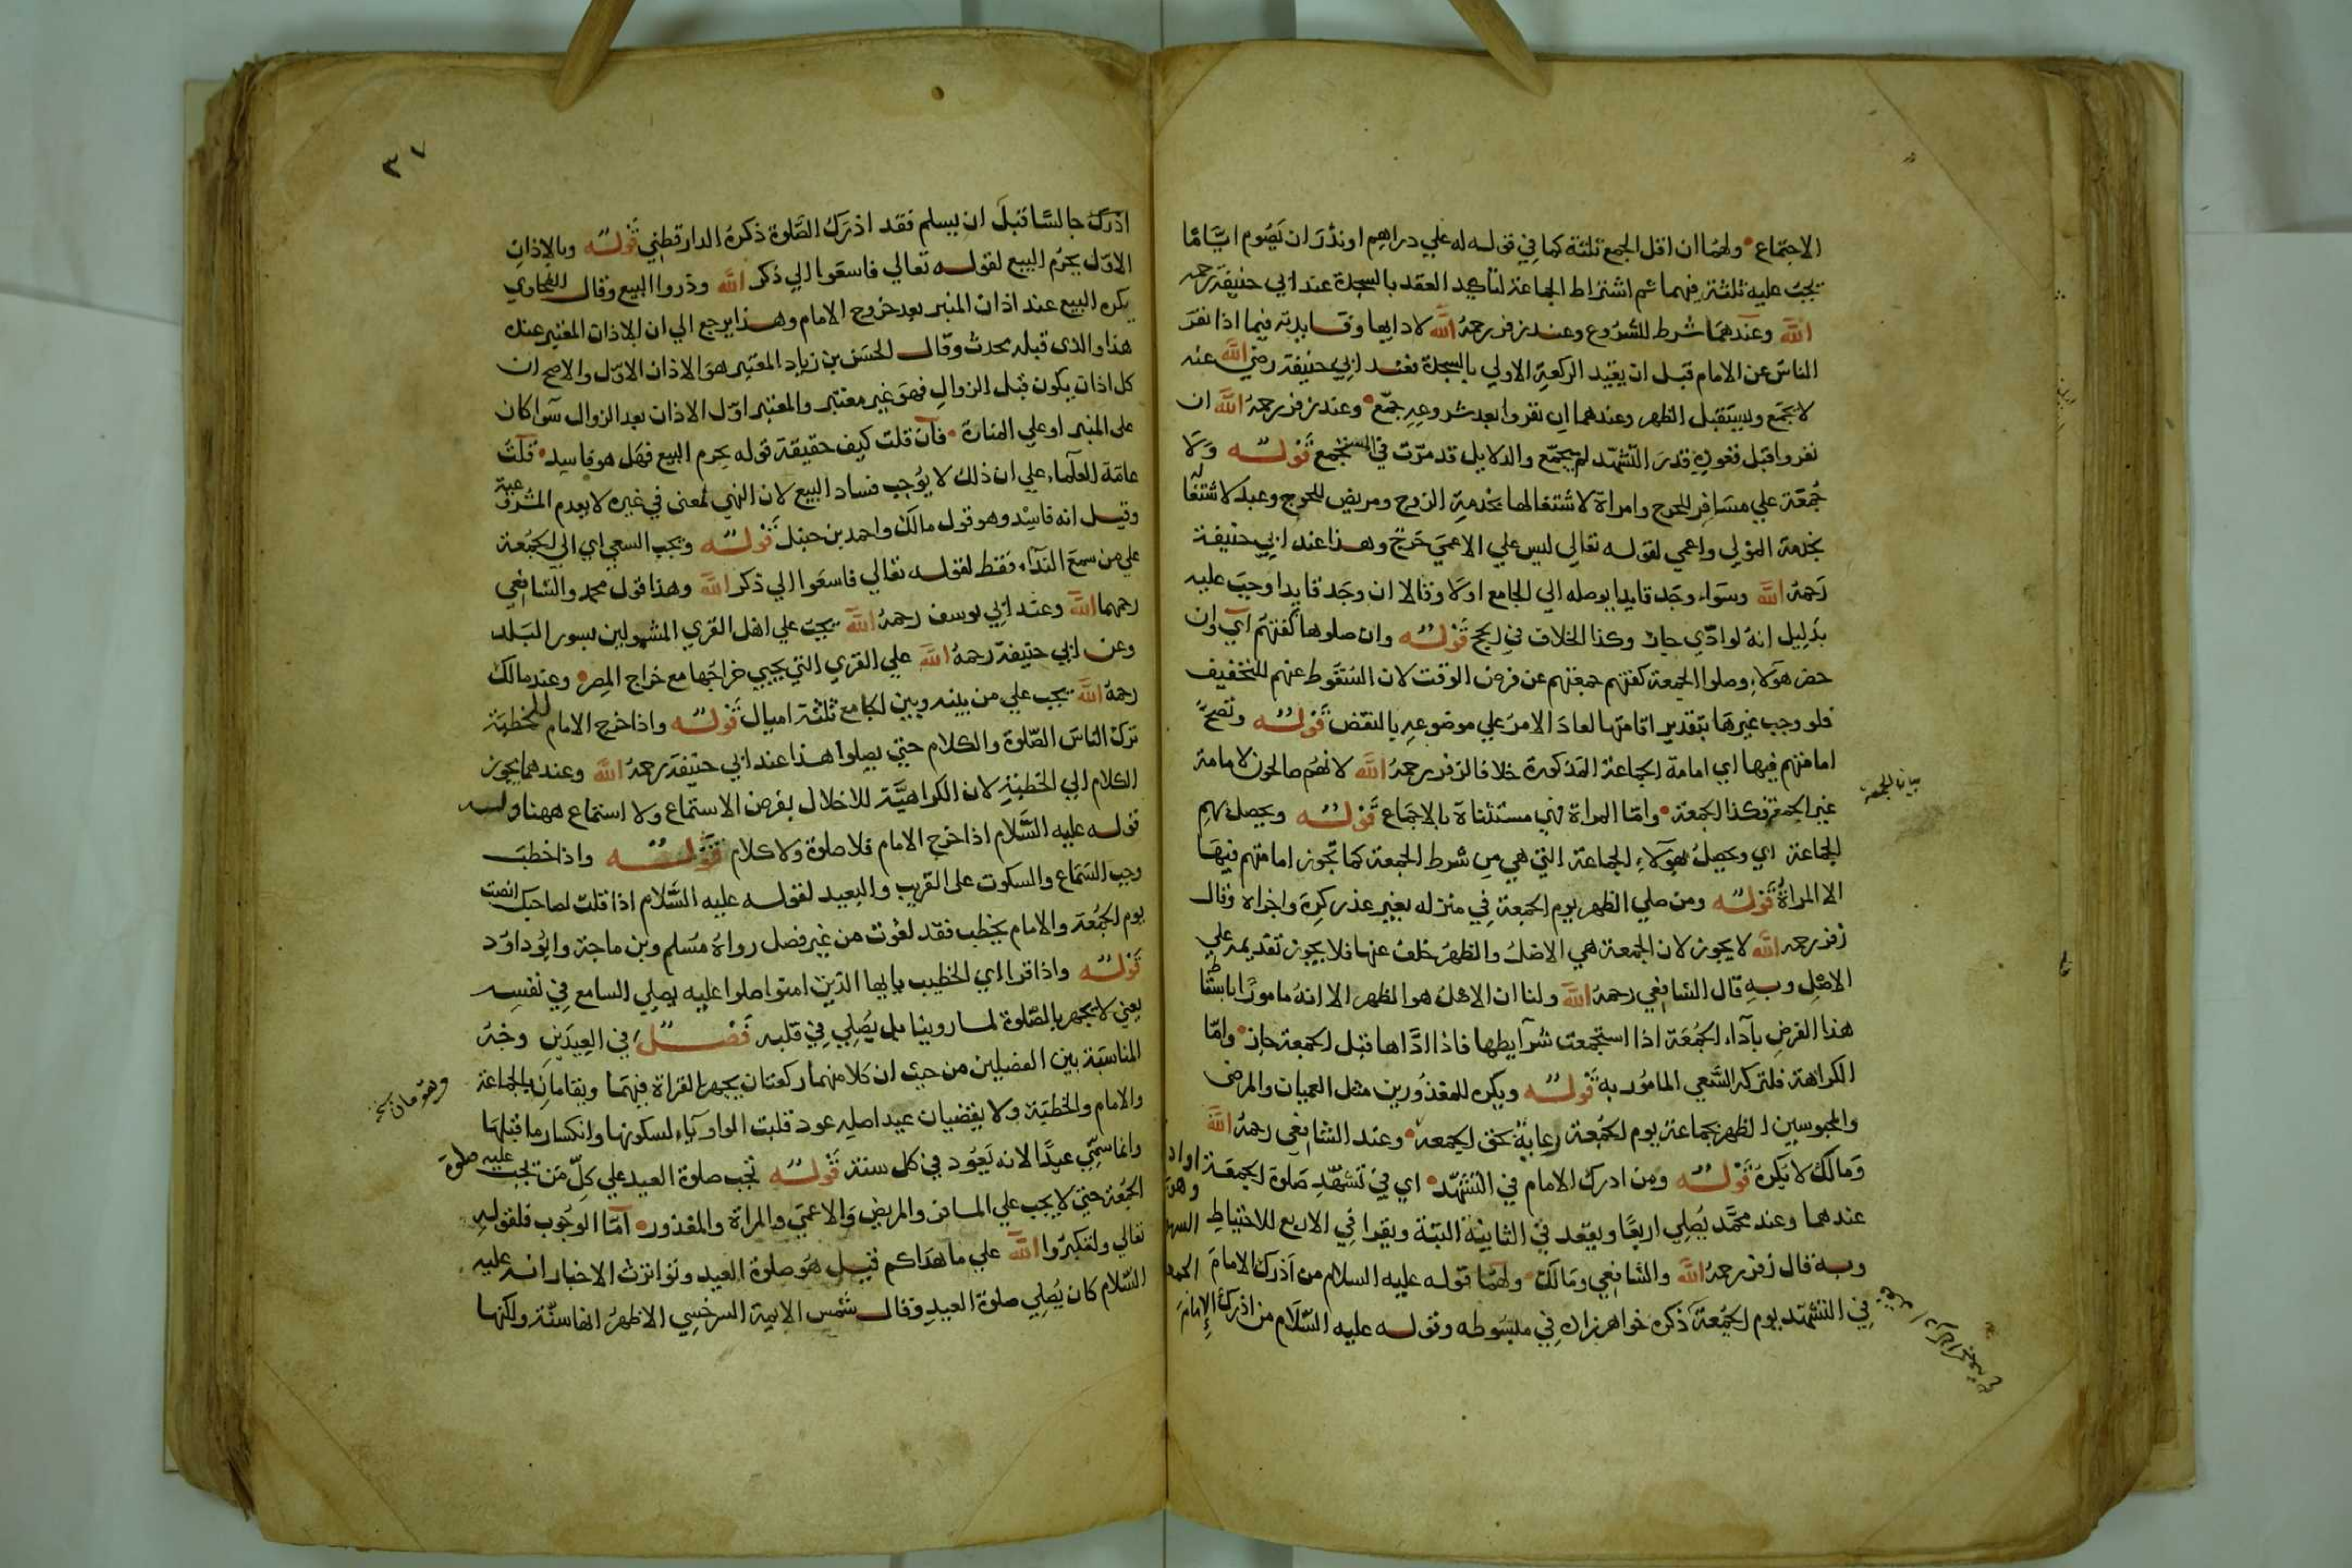 الاجتماع ولهما ان اقل الجمع ثلثة كما في قوله له علي دراهم او نذر ان يصوم اياما
يجب عليه ثلثة فيهما ثم اشتراط الجماعة لتاكيد العقد بالسجدة عند ابي حنيفة رحمه
الله وعندهما شرط للشروع وعند زفر رحمه الله لادايها وفايدته فيما اذا نفر
الناس عن الامام قبل ان يقيد الركعة الاولي بالسجدة فعند ابي حنيفة رضي الله عنه
لا يجمع ويستقبل الظهر وعندهما ان نفروا بعد شروعه جمع وعند زفر رحمه الله ان
نفروا قبل قعوده قدر التشهد لم يجمع والدلايل قد مرت في المستجمع قوله ولا
جمعة علي مسافر للحرج وامراة لاشتغالها بخدمة الزوج ومريض للحرج وعبد لاشتغاله
بخدمة المولي واعمي لقوله تعالي ليس علي الاعمي حرج وهذا عند ابي حنيفة
رحمه الله وسواء وجد قايدا يوصله الي الجامع اولا وقالا ان وجد قايدا وجب عليه
بدليل انه لو ادي جاز وكذا الخلاف في الحج قوله وان صلوها كفتهم اي وان
حضر هولاء وصلوا الجمعة كفتهم جمعتهم عن فرض الوقت لان السقوط عنهم للتخفيف
فلو وجب غيرها بتقدير اقامتها لعاد الامر علي موضوعه بالنقض قوله وتصح
امامتهم فيها اي امامة الجماعة المذكورة خلافا لزفر رحمه الله لانهم صالحون لامامة
غير الجمعة فكذا الجمعة واما المراة فهي مستثناة بالاجماع قوله ويحصل بهم
بيان الجمعة
الجماعة اي ويحصل بهولاء الجماعة التي هي من شرط الجمعة كما تجوز امامتهم فيها
الا المراة قوله ومن صلي الظهر يوم الجمعة في منزله بغير عذر كره واجزاه وقال
زفر رحمه الله لا يجوز لان الجمعة هي الاصل والظهر خلف عنها فلا يجوز تقديمه علي
الاصل وبه قال الشافعي رحمه الله ولنا ان الاصل هو الظهر الا انه مامور باسقاط
هذا الفرض باداء الجمعة اذا استجمعت شرايطها فاذا اداها قبل الجمعة جاز واما
الكراهة فلتركه السعي المامور به قوله ويكره للمعذورين مثل العميان والمرضي
والمحبوسين الظهر بجماعة يوم الجمعة رعاية لحق الجمعة وعند الشافعي رحمه الله
ومالك لا يكره قوله ومن ادرك الامام في التشهد اي في تشهد صلوة الجمعة
عندهما وعند محمد يصلي اربعا ويقعد في الثانية البتة ويقرا في الاربع للاحتياط
وبه قال زفر رحمه الله والشافعي ومالك ولهما قوله عليه السلام من ادرك الامام
في التشهد يوم الجمعة ذكره خواهرزاده في مبسوطه وقوله عليه السلام من ادرك الامام
٣٧
ادرك جالسا قبل ان يسلم فقد ادرك الصلوة ذكره الدارقطني قوله وبالاذان
الاول يحرم البيع لقوله تعالي فاسعوا الي ذكر الله وذروا البيع وقال الطحاوي
يكره البيع عند اذان المنبر بعد خروج الامام وهذا يرجع الي ان الاذان المعتبر عنده
هذا والذي قبله محدث وقال الحسن بن زياد المعتبر هو الاذان الاول والاصح ان
كل اذان يكون قبل الزوال فهو غير معتبر والمعتبر اول الاذان بعد الزوال سوا كان
على المنبر او علي المنارة فان قلت كيف حقيقة قوله يحرم البيع فهل هو فاسد قلت
عامة العلماء علي ان ذلك لا يوجب فساد البيع لان النهي لمعنى في غيره لا يعدم المشروعية
وقيل انه فاسد وهو قول مالك واحمد بن حنبل قوله ويجب السعي اي الي الجمعة
علي من سمع النداء فقط لقوله تعالي فاسعوا الي ذكر الله وهذا قول محمد والشافعي
رحمهما الله وعند ابي يوسف رحمه الله يجب علي اهل القري المشمولين بسور البلد
وعن ابي حنيفة رحمه الله علي القري التي يجبي خراجها مع خراج المصر وعند مالك
رحمه الله يجب علي من بينه وبين الجامع ثلثة اميال قوله واذا خرج الامام للخطبة
ترك الناس الصلوة والكلام حتي يصلوا هذا عند ابي حنيفة رحمه الله وعندهما يجوز
الكلام الي الخطبة لان الكراهية للاخلال بفرض الاستماع ولا استماع ههنا وله
قوله عليه السلام اذا خرج الامام فلا صلوة ولا كلام قوله واذا خطب
وجب السماع والسكوت على القريب والبعيد لقوله عليه السلام اذا قلت لصاحبك انصت
يوم الجمعة والامام يخطب فقد لغوت من غير فصل رواه مسلم وبن ماجة وابو داود
قوله واذا قرا اي الخطيب يايها الذين امنوا صلوا عليه يصلي السامع في نفسه
يعني لا يجهر بالصلوة لما روينا بل يصلي في قلبه فصل في العيدين وجه
المناسبة بين الفصلين من حيث ان كلا منهما ركعتان يجهر بالقراة فيهما ويقامان بالجماعة
والامام والخطبة ولا يقضيان عيد اصله عود قلبت الواو ياء لسكونها وانكسار ما قبلها
وانما سمي عيدا لانه يعود في كل سنة قوله تجب صلوة العيد علي كل من تجب عليه صلوة
الجمعة حتي لا يجب علي المسافر والمريض والاعمي والمراة والمعذور اما الوجوب فلقوله
تعالي ولتكبروا الله علي ما هداكم قيل هو صلوة العيد وتواترت الاخبار انه عليه
السلام كان يصلي صلوة العيد وقال شمس الايمة السرخسي الاظهر انها سنة ولكنها